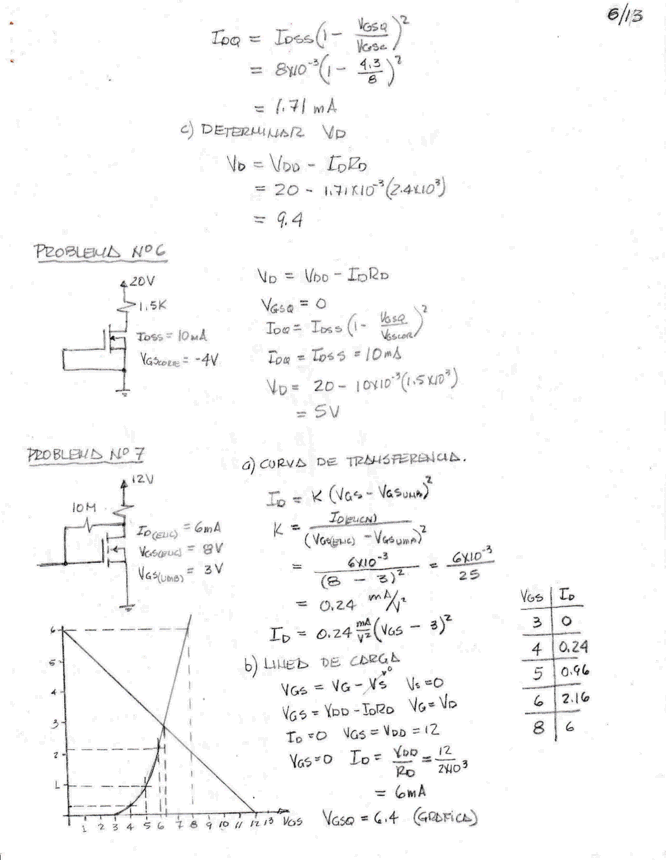 6/13
IDQ = IDSS(1 - VGSQ/VGSC)²
= 8x10⁻³(1 - 4.3/8)²
= 1.71 mA
c) DETERMINAR VD
VD = VDD - IDRD
= 20 - 1.71x10⁻³(2.4x10³)
= 9.4
PROBLEMA Nº 6
20V
1.5K
IDSS = 10mA
VGSCORTE = -4V
VD = VDD - IDRD
VGSQ = 0
IDQ = IDSS(1 - VGSQ/VGSCOR)²
IDQ = IDSS = 10mA
VD = 20 - 10x10⁻³(1.5x10³)
= 5V
PROBLEMA Nº 7
12V
10M
ID(ENC) = 6mA
VGS(ENC) = 8V
VGS(UMB) = 3V
a) CURVA DE TRANSFERENCIA.
ID = K(VGS - VGSUMB)²
K = ID(ENCN)/(VGS(ENC) - VGSUMB)²
= 6x10⁻³/(8 - 3)² = 6x10⁻³/25
= 0.24 mA/V²
ID = 0.24 mA/V² (VGS - 3)²
VGS | ID
3 | 0
4 | 0.24
5 | 0.96
6 | 2.16
8 | 6
b) LINEA DE CARGA
VGS = VG - VS⁰ VS = 0
VGS = VDD - IDRD VG = VD
ID = 0 VGS = VDD = 12
VGS = 0 ID = VDD/RD = 12/2x10³
= 6mA
VGSQ = 6.4 (GRAFICA)
6
5
4
3
2
1
1 2 3 4 5 6 7 8 9 10 11 12 13 VGS